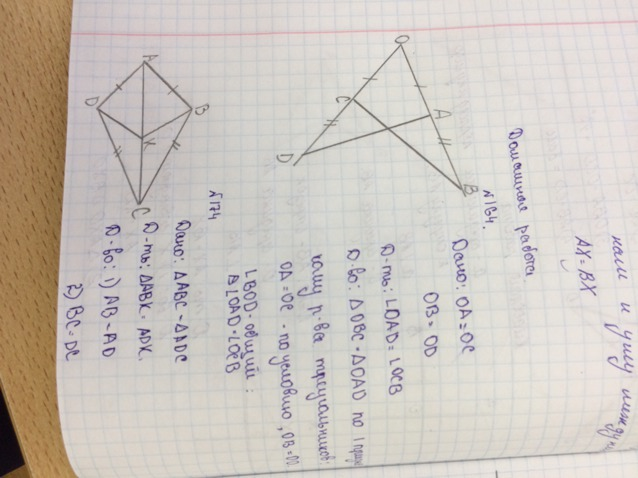 нам и углу между
AX = BX
Домашняя работа
№164.
O
C
A
D
B
Дано: OA = OC
OB = OD
Д-ть: ∠OAD = ∠OCB
Д-во: ΔOBC = ΔOAD по 1 приз
наку р-ва треугольников:
OA = OC - по условию, OB = OD
∠BOD - общий;
∠OAD = ∠OCB
№174
A
D
B
K
C
Дано: ΔABC = ΔADC
Д-ть: ΔABK = ADK.
Д-во: 1) AB = AD
2) BC = DC